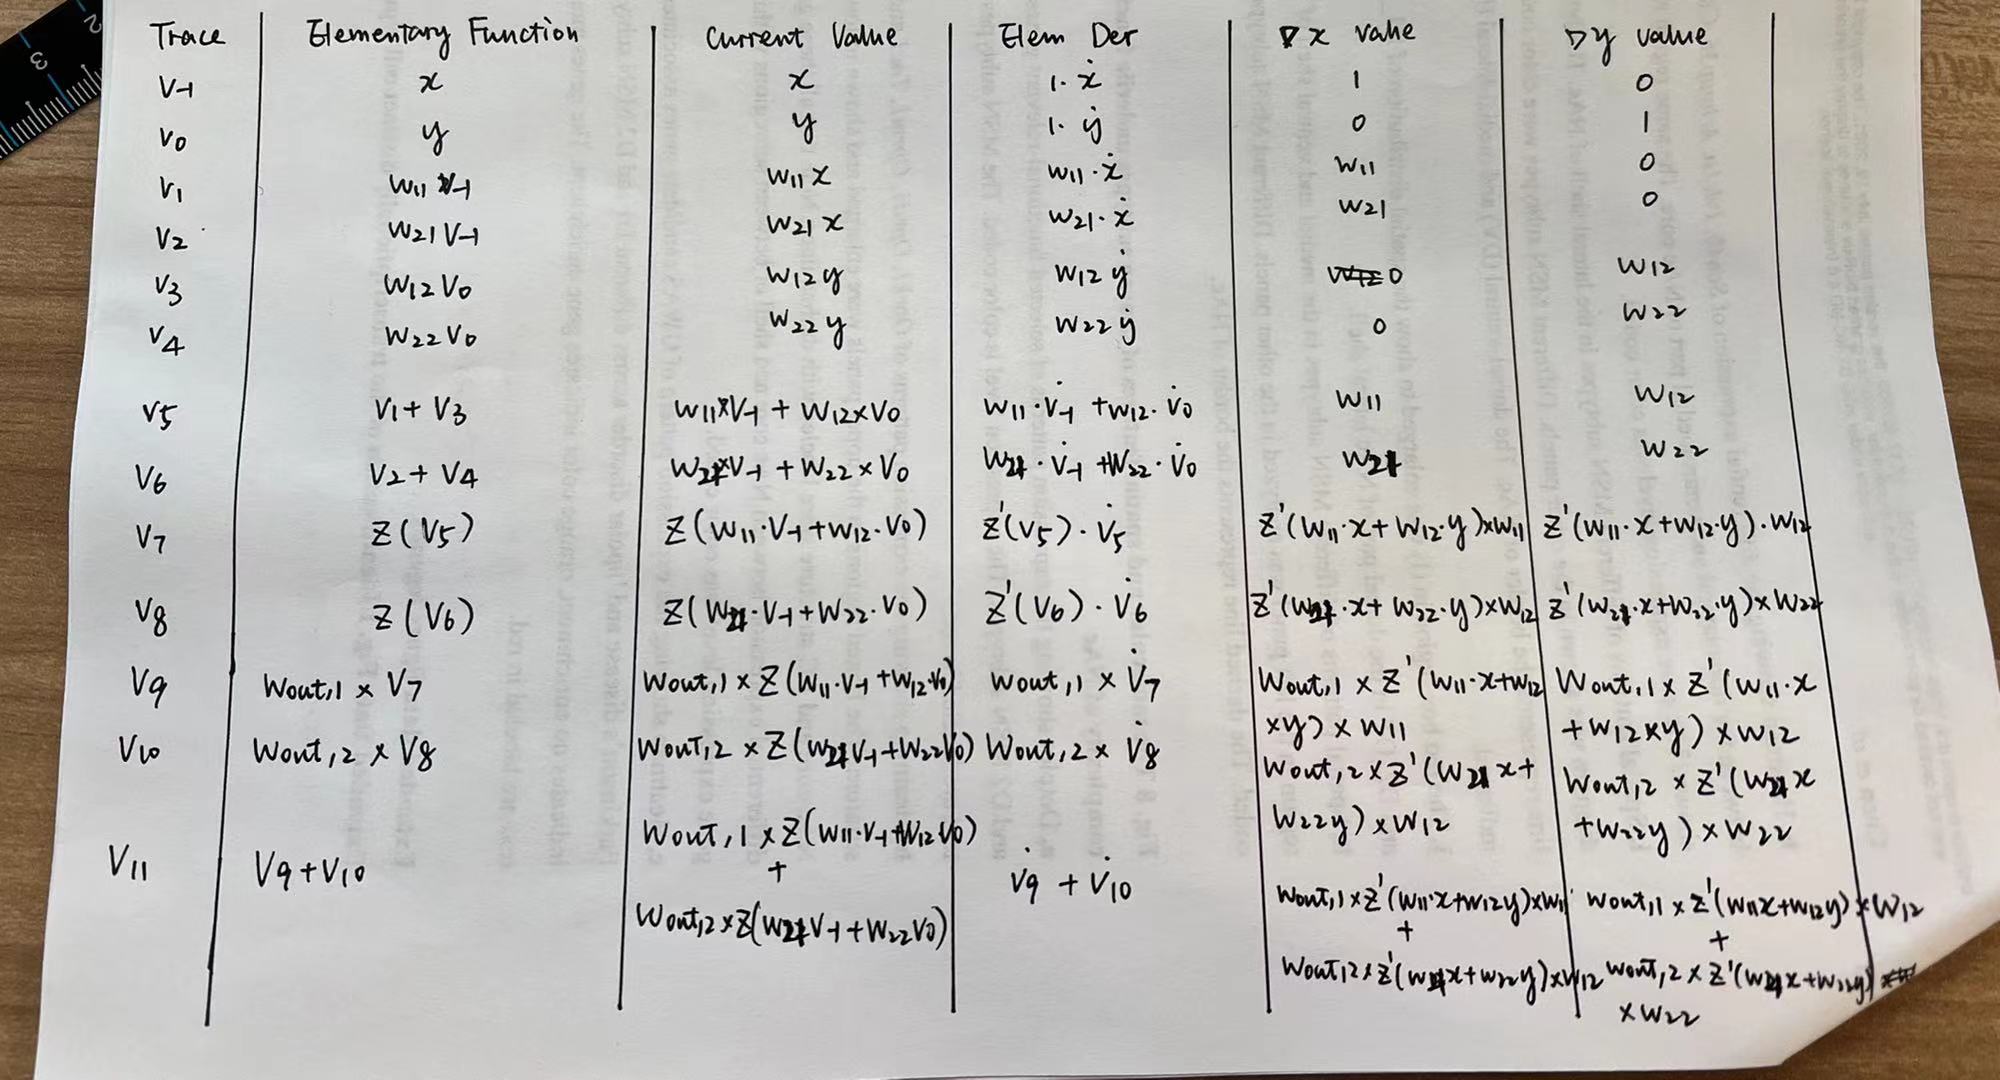 Trace Elementary Function Current Value Elem Der ∇x value ∇y value
V-1 x x 1·ẋ 1 0
V0 y y 1·ẏ 0 1
V1 W11 V-1 W11 x W11·ẋ W11 0
V2 W21 V-1 W21 x W21·ẋ W21 0
V3 W12 V0 W12 y W12 ẏ 0 W12
V4 W22 V0 W22 y W22 ẏ 0 W22
V5 V1 + V3 W11×V-1 + W12×V0 W11·V̇-1 + W12·V̇0 W11 W12
V6 V2 + V4 W21×V-1 + W22×V0 W21·V̇-1 + W22·V̇0 W21 W22
V7 Z(V5) Z(W11·V-1 + W12·V0) Z'(V5)·V̇5 Z'(W11·x + W12·y)×W11 Z'(W11·x + W12·y)·W12
V8 Z(V6) Z(W21·V-1 + W22·V0) Z'(V6)·V̇6 Z'(W21·x + W22·y)×W12 Z'(W21·x + W22·y)×W22
V9 Wout,1 × V7 Wout,1 × Z(W11·V-1 + W12·V0) Wout,1 × V̇7 Wout,1 × Z'(W11·x + W12 Wout,1 × Z'(W11·x
×y) × W11 + W12×y) × W12
V10 Wout,2 × V8 Wout,2 × Z(W21V-1 + W22V0) Wout,2 × V̇8 Wout,2 × Z'(W21 x + Wout,2 × Z'(W21 x
W22y) × W12 + W22y) × W22
V11 V9 + V10 Wout,1 × Z(W11·V-1 + W12V0) V̇9 + V̇10 Wout,1 × Z'(W11·x + W12y)×W11 Wout,1 × Z'(W11x + W12y) × W12
+ + +
Wout,2 × Z(W21V-1 + W22V0) Wout,2 × Z'(W21x + W22y)×W12 Wout,2 × Z'(W21x + W22y)
× W22
3
2